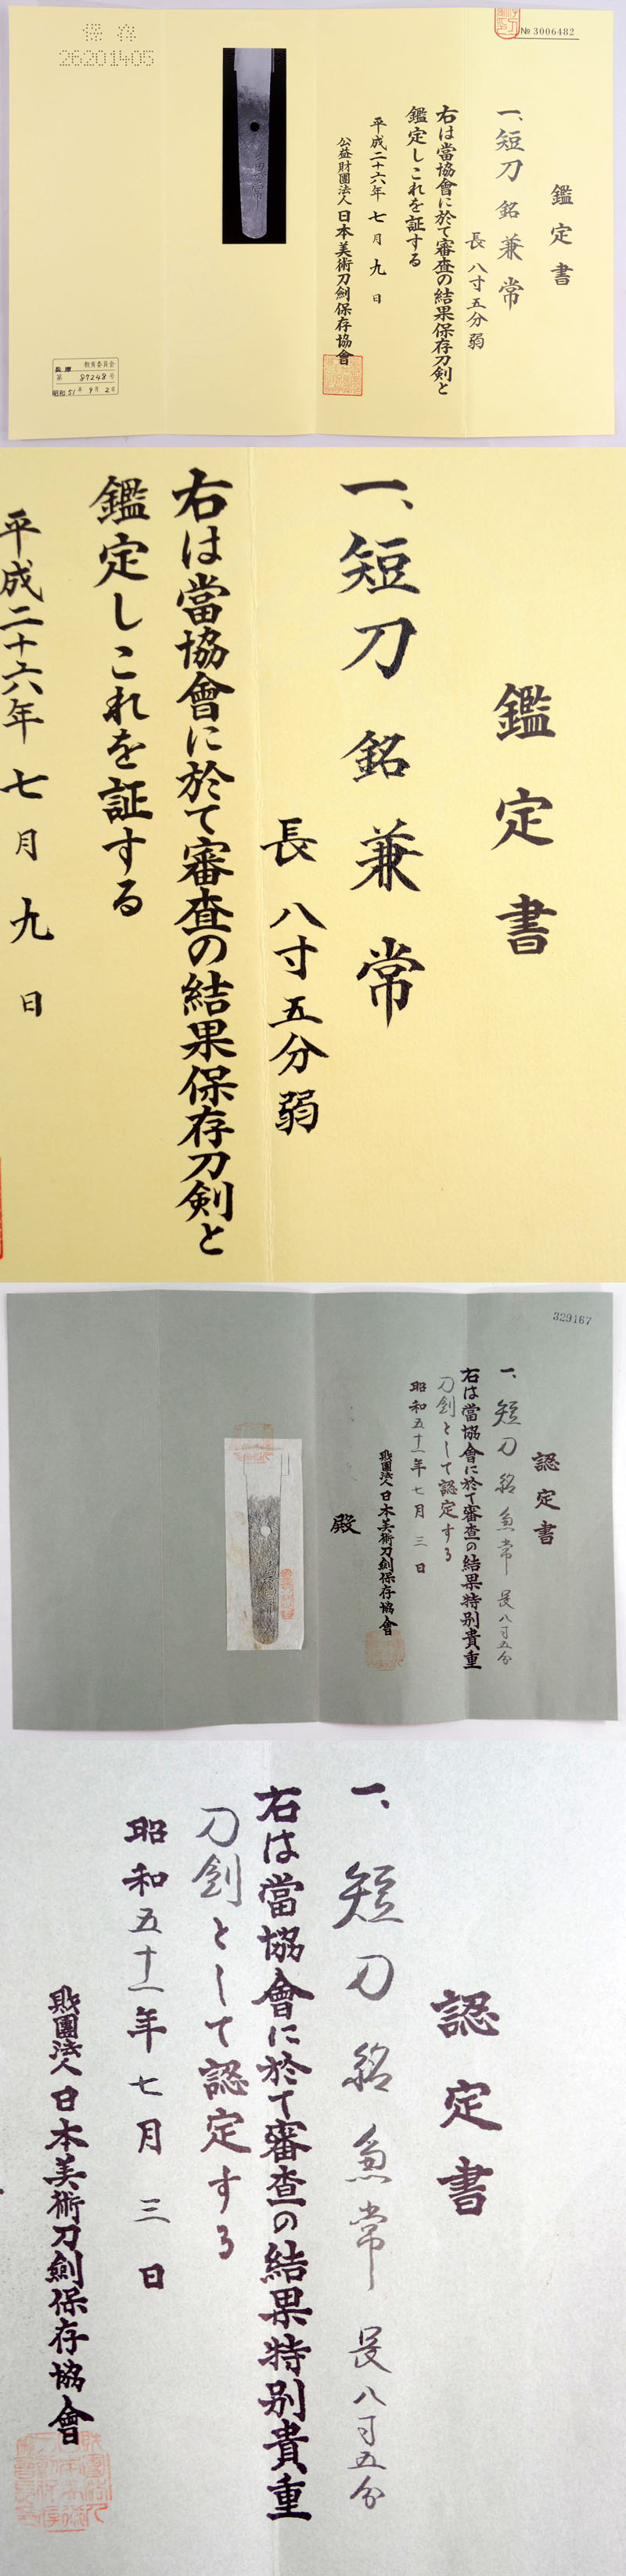 保存
26201405
№ 3006482
鑑定書
一、短刀 銘 兼常
長 八寸五分弱
右は當協會に於て審査の結果保存刀剣と
鑑定しこれを証する
平成二十六年 七月 九日
公益財團法人 日本美術刀劍保存協會
兼常
教育委員会
第 87248 号
昭和51年9月2日
鑑定書
一、短刀 銘 兼常
長 八寸五分弱
右は當協會に於て審査の結果保存刀剣と
鑑定しこれを証する
平成二十六年 七月 九日
329167
認定書
一、短刀 銘 兼常 長八寸五分
右は當協會に於て審査の結果特別貴重
刀劍として認定する
昭和五十一年七月三日
財團法人 日本美術刀劍保存協會
殿
認定書
一、短刀 銘 兼常 長八寸五分
右は當協會に於て審査の結果特別貴重
刀劍として認定する
昭和五十一年七月三日
財團法人 日本美術刀劍保存協會